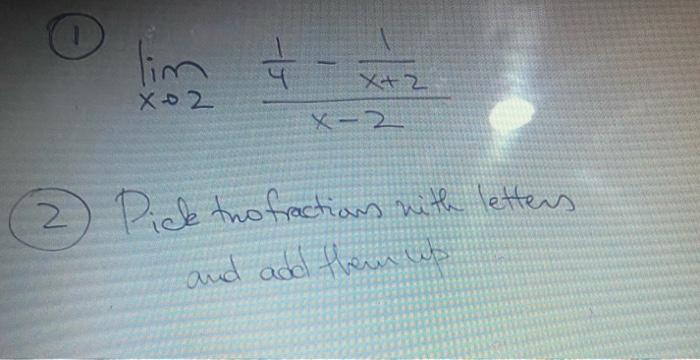 1
lim x→2 (1/4 - 1/(x+2)) / (x-2)
2 Pick two fractions with letters
and add them up